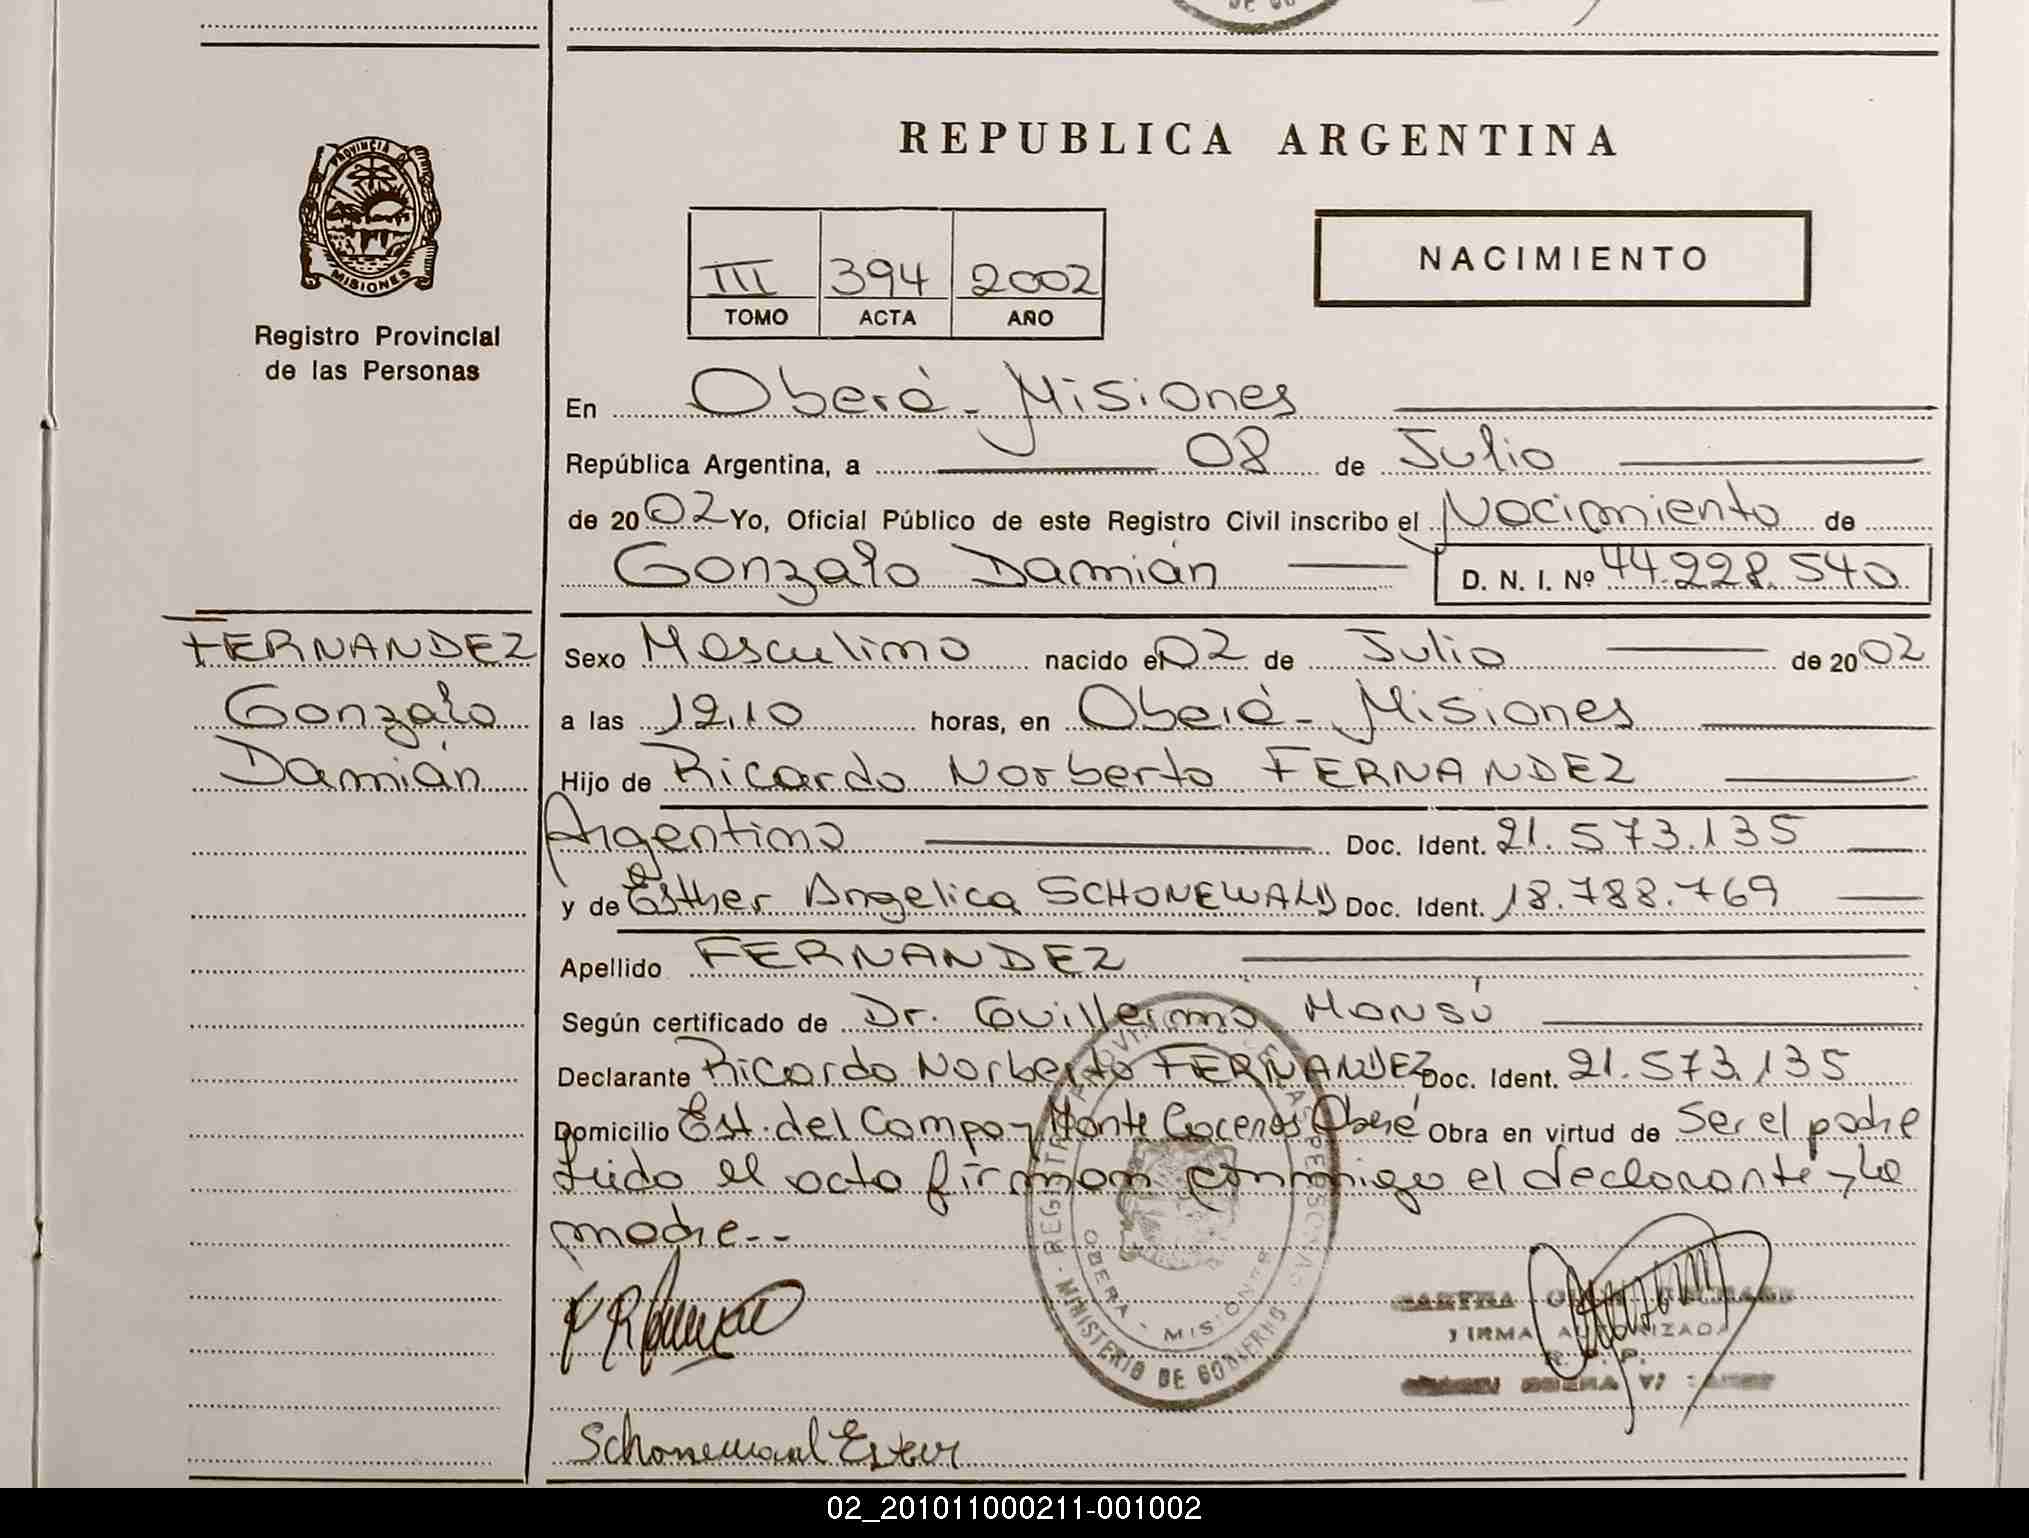 REPUBLICA ARGENTINA
PROVINCIA DE
MISIONES
Registro Provincial
de las Personas
III 394 2002
TOMO ACTA AÑO
NACIMIENTO
En Oberá - Misiones
República Argentina, a 08 de Julio
de 2002 Yo, Oficial Público de este Registro Civil inscribo el Nacimiento de
Gonzalo Damián D. N. I. Nº 44.228.540
FERNANDEZ
Gonzalo
Damián
Sexo Masculino nacido el 02 de Julio de 2002
a las 12.10 horas, en Oberá - Misiones
Hijo de Ricardo Norberto FERNANDEZ
Argentino Doc. Ident. 21.573.135
y de Esther Angelica SCHONEWALD Doc. Ident. 18.788.769
Apellido FERNANDEZ
Según certificado de Dr. Guillermo Monsú
Declarante Ricardo Norberto FERNANDEZ Doc. Ident. 21.573.135
Domicilio Est. del Campo y Monte Caceros Oberá Obra en virtud de Ser el padre
Leido el acta firman conmigo el declarante y la
madre--
REGISTRO
OBERA - MISIONES
MINISTERIO DE GOBIERNO
FIRMA AUTORIZADA
R. P. P.
Schonewald Ester
02_201011000211-001002